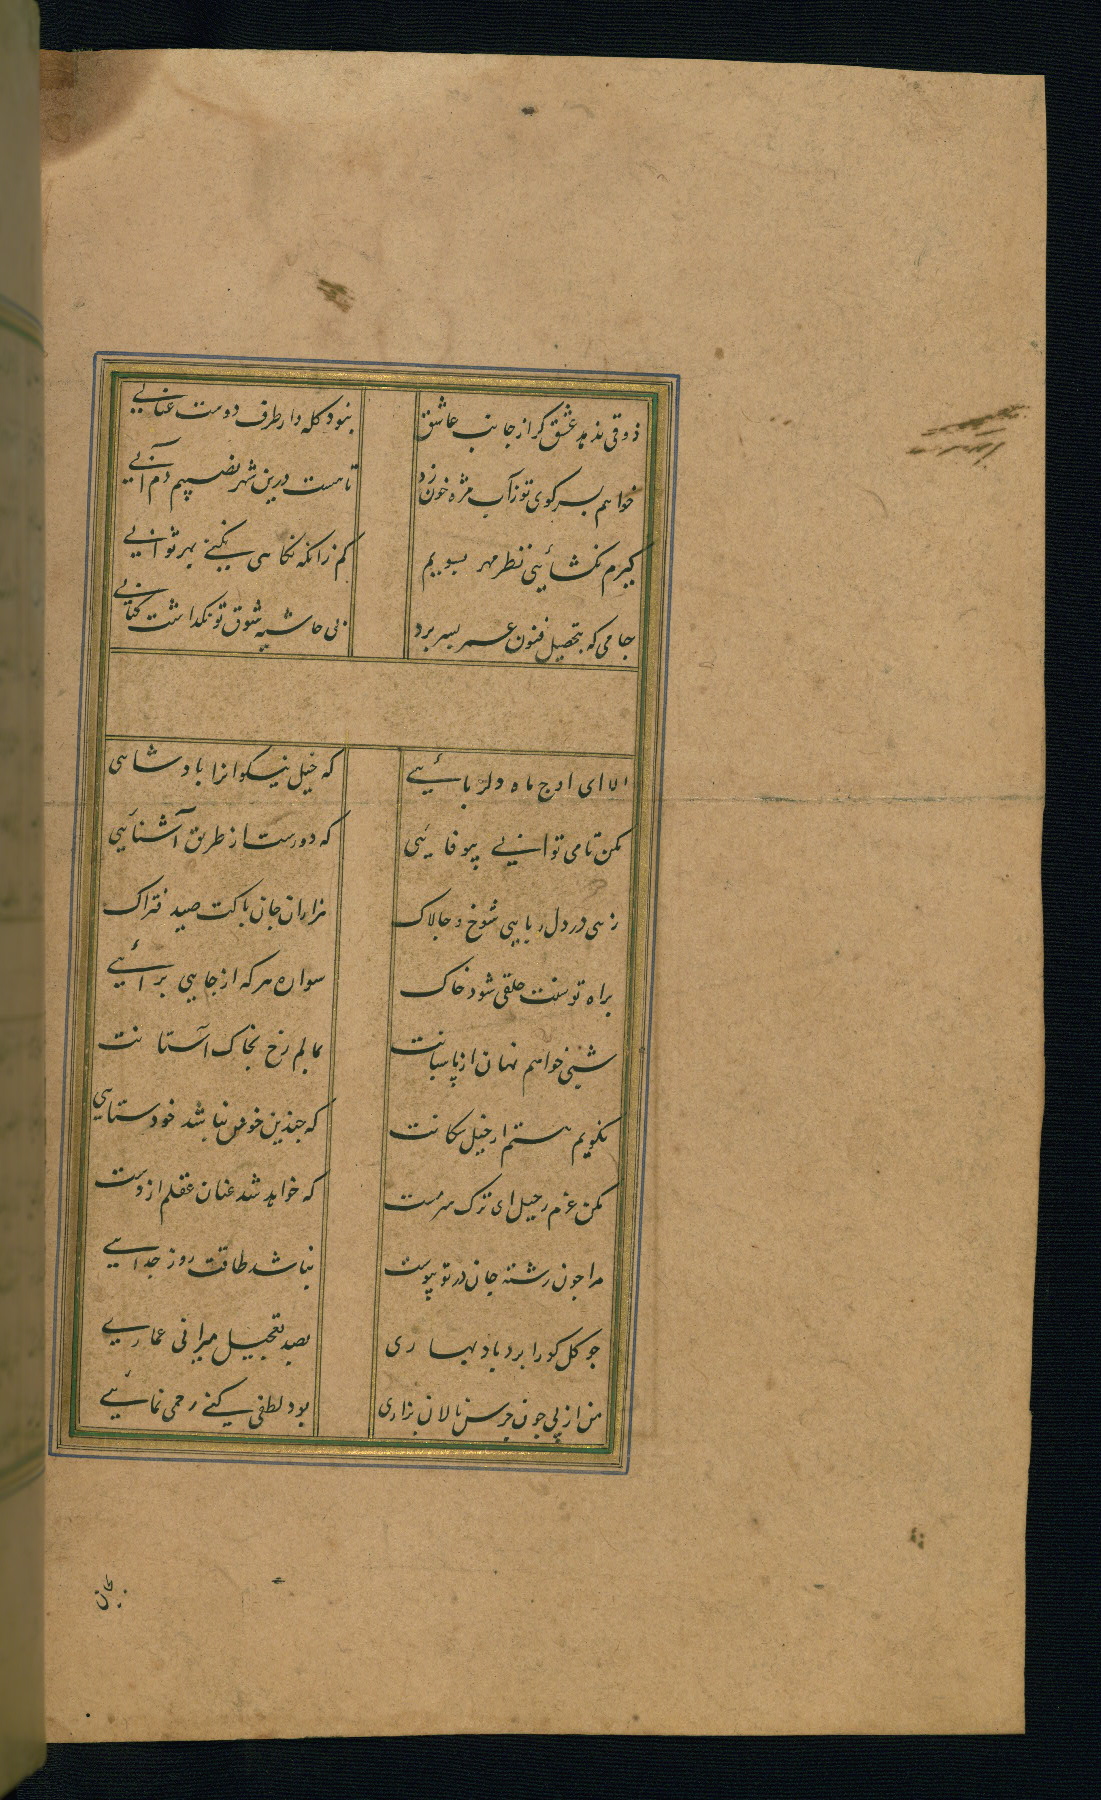 ذوقی ندهد عشق گر از جانب عاشق نبود گله دار طرف دوست عنایی
خواهم بسر کوی تو ز آب مژه خون زد تا هست درین شهر نصیبم دم آبی
گیرم نکشائی نظر مهر بسویم کم زانکه نگاهی بکنی بهر ثوابی
جامی که بتحصیل فنون عمر بسر برد بی حاشیه شوق تو نگذاشت کتابی
الا ای اوج ماه دلربائی که خیل نیکوانرا پادشاهی
مکن تا می توانی بیوفائی که دورست از طریق آشنائی
زهی در دلربایی شوخ و چالاک هزاران جان پاکت صید فتراک
براه توسنت خلقی شود خاک سواره هر که از جایی برآئی
شبی خواهم نهان از پاسبانت بمالم رخ بخاک آستانت
نگویم هستم از خیل سگانت که چندین خوش نباشد خودستایی
مکن عزم رحیل ای ترک سرمست که خواهد شد عنان عقلم از دست
مرا چون رشته جان در تو پیوست نباشد طاقت روز جدایی
چو گل کورا برد باد بهاری بصد تعجیل میرانی عماری
من از پی چون جرس نالان بزاری بود لطفی کنی رحمی نمائی